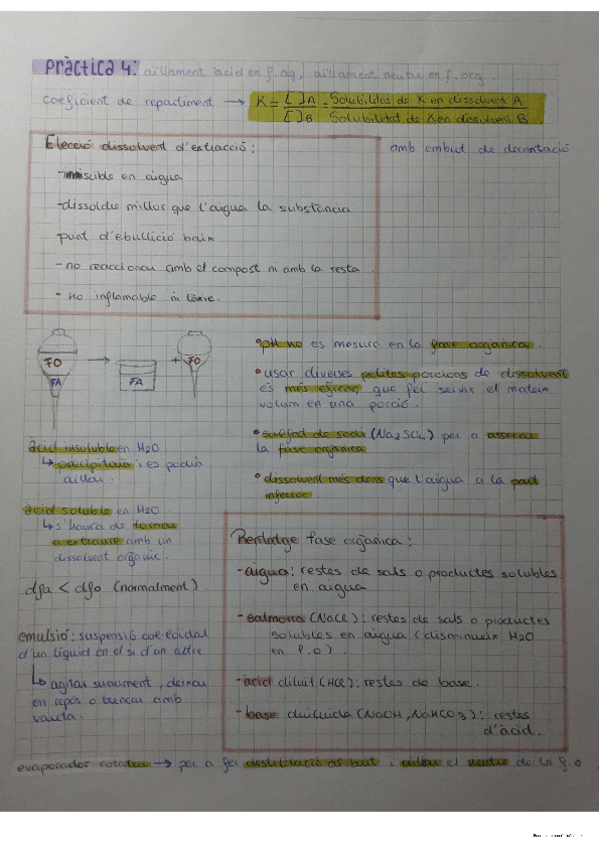 Pràctica 4: aïllament àcid en f. aq, aïllament neutre en f. org
coeficient de repartiment → K = [ ]A / [ ]B = Solubilitat de X en dissolvent A / Solubilitat de X en dissolvent B
Elecció dissolvent d'extracció:
amb embud de decantació
-immiscible en aigua
-dissoldre millor que l'aigua la substància
punt d'ebullició baix
- no reaccioneu amb el compost ni amb la resta
- no inflamable ni tòxic.
FO → FA + FO
FA
•pH no es mesura en la fase orgànica.
•usar diverses petites porcions de dissolvent
és més eficaç que fer servir el mateix
volum en una porció.
•sulfat de sodi (Na2SO4) per a assecar
la fase orgànica
•dissolvent més dens que l'aigua a la part
inferior
àcid insoluble en H2O
↳ precipitarà i es podrà
aïllar.
àcid soluble en H2O
↳ s'haurà de tornar
a extraure amb un
dissolvent orgànic.
dfa < dfo (normalment)
emulsió: suspensió col·loidal
d'un líquid en el si d'un altre
↳ agitar suaument, deixar
en repós o trencar amb
vareta.
Rentatge fase orgànica:
-aigua: restes de sals o productes solubles
en aigua
-salmorra (NaCl): restes de sals o productes
solubles en aigua (disminueix H2O
en f.o)
-àcid diluït (HCl): restes de base.
- base diluïda (NaOH, NaHCO3): restes
d'àcid.
evaporador rotatori → per a fer destil·lació al buit i aïllar el neutre de la f.o